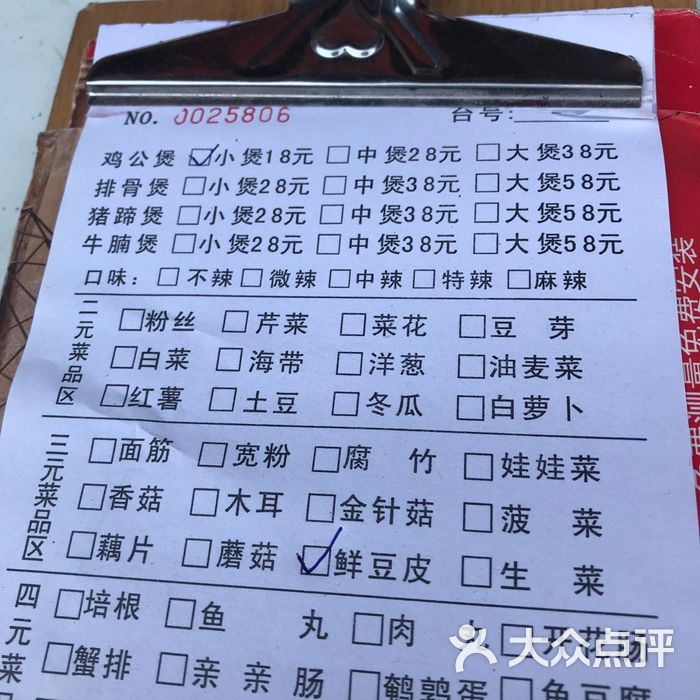 NO. 0025806 台号:
鸡公煲 小煲18元 中煲28元 大煲38元
排骨煲 小煲28元 中煲38元 大煲58元
猪蹄煲 小煲28元 中煲38元 大煲58元
牛腩煲 小煲28元 中煲38元 大煲58元
口味: 不辣 微辣 中辣 特辣 麻辣
二元菜品区
粉丝 芹菜 菜花 豆芽
白菜 海带 洋葱 油麦菜
红薯 土豆 冬瓜 白萝卜
三元菜品区
面筋 宽粉 腐竹 娃娃菜
香菇 木耳 金针菇 菠菜
藕片 蘑菇 鲜豆皮 生菜
四元菜
培根 鱼丸 肉丸 开花肠
蟹排 亲亲肠 鹌鹑蛋 鱼豆腐
测量免费安装
大众点评